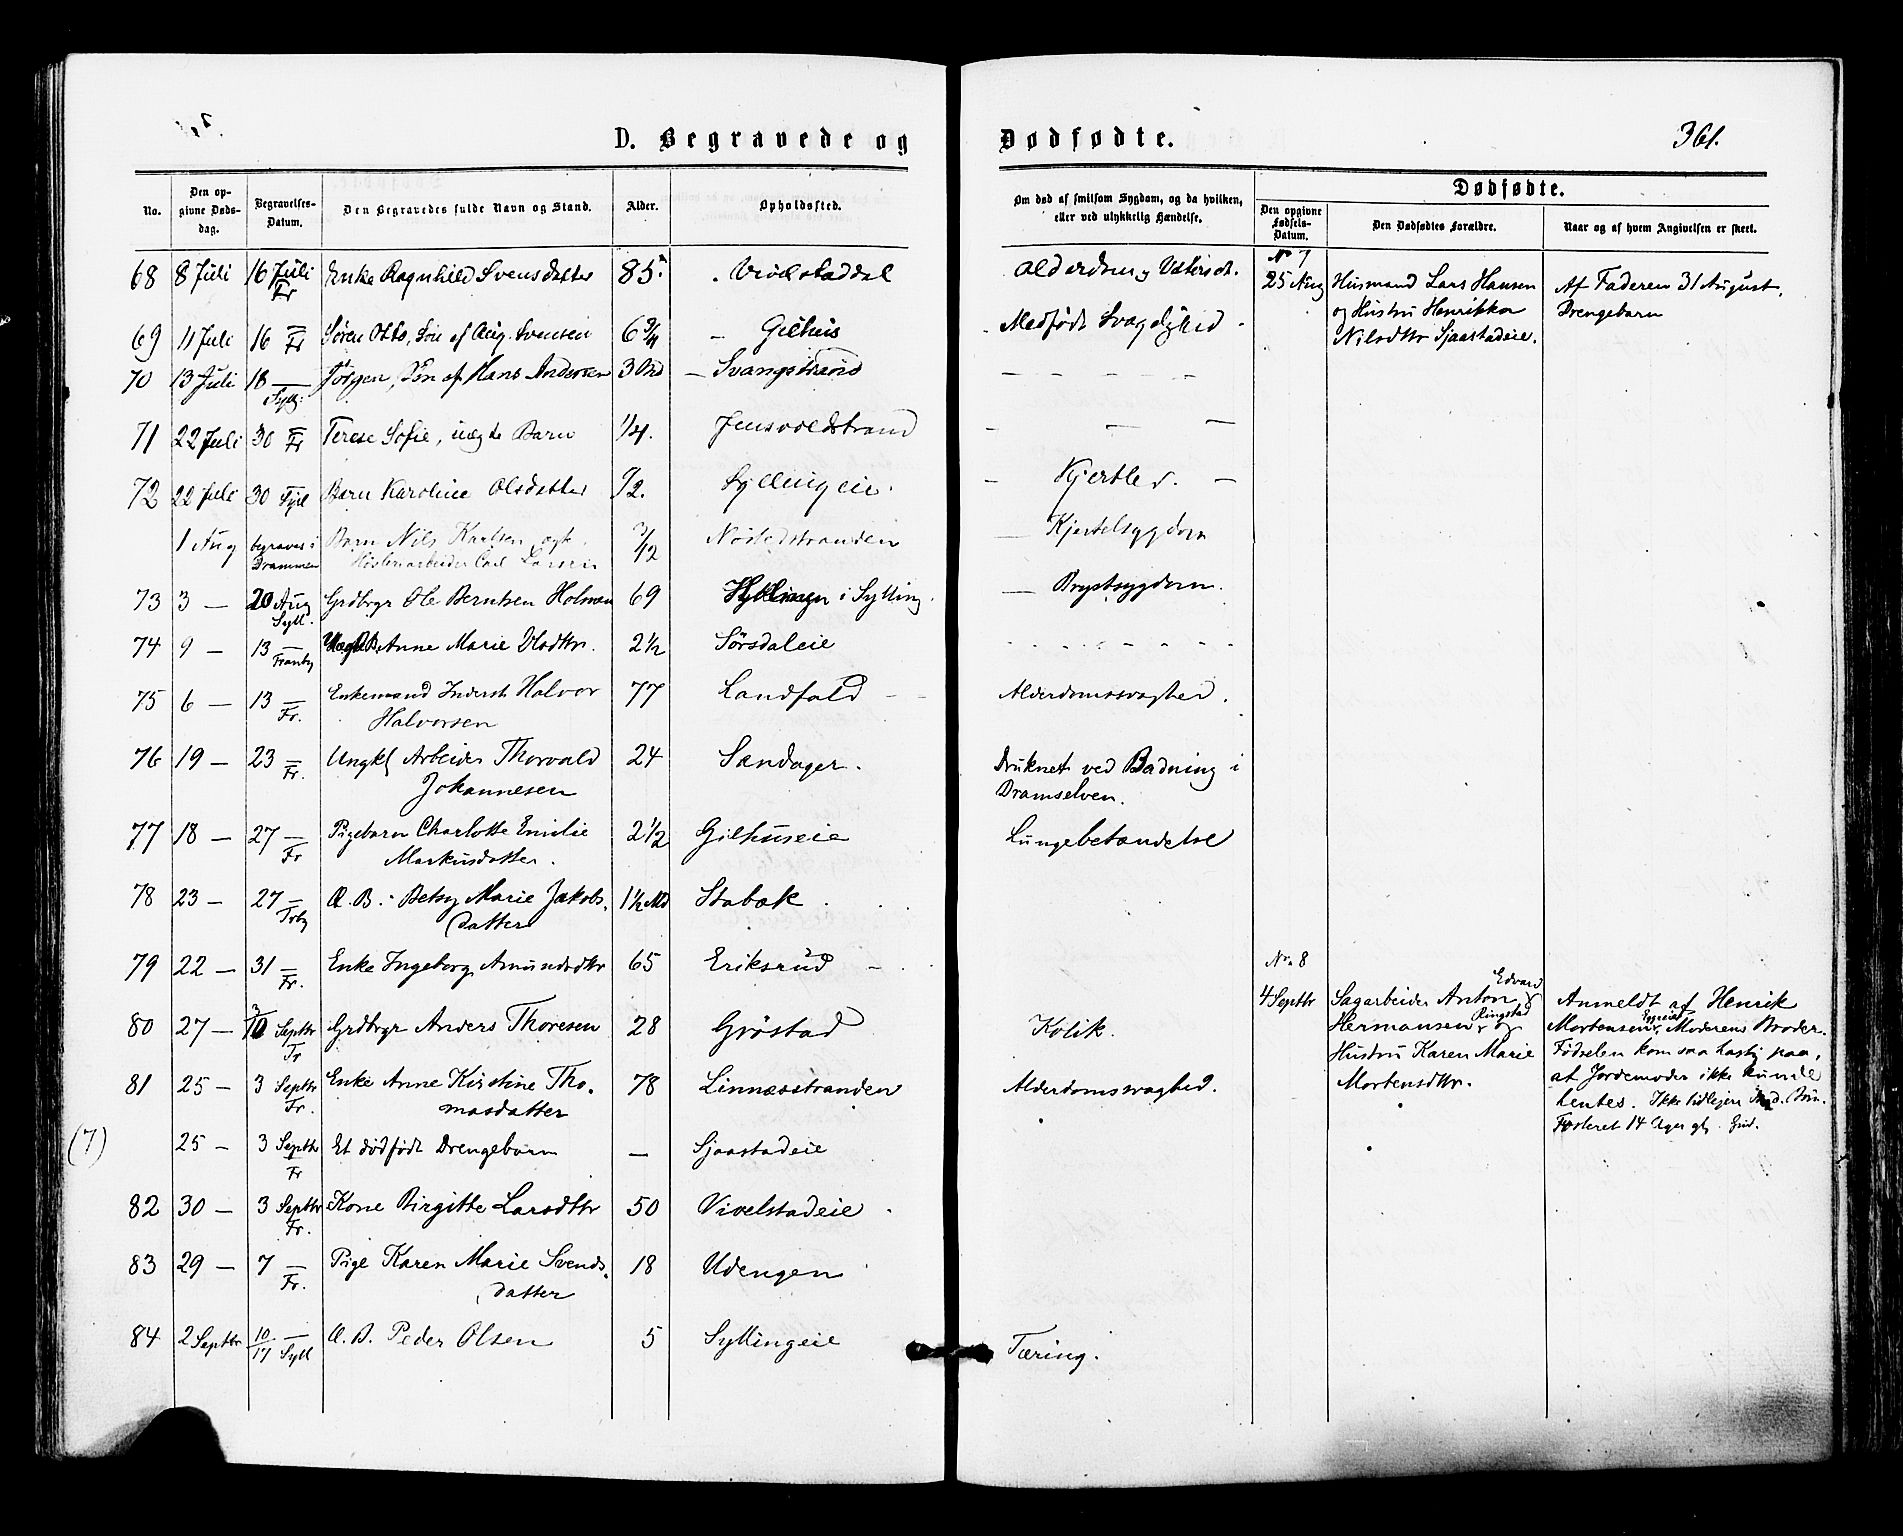 D. Begravede og Dødfødte. 361.
No. Den opgivne Dødsdag. Begravelses-Datum. Den Begravedes fulde Navn og Stand. Alder. Opholdssted. Om død af smitsom Sygdom, og da hvilken, eller ved ulykkelig Hændelse.
Dødfødte.
Den opgivne Fødsels-Datum. Den Dødfødtes Forældre. Naar og af hvem Angivelsen er skeet.
68 8 Juli 16 Juli Fr Enke Ragnhild Svensdatter 85
69 11 Juli 16 — Fr Søren Otto, Søn af Aug. Svensen 6 3/4 — Gilhus Medfødt Svaghed
70 13 Juli 18 — Sylg. Jørgen, Søn af Hans Andersen 3 — Svangstrand — — — — —
71 22 Juli 30 — Fr Terese Sofie, uægte Barn 1/4. Jensvoldstrand — — —
72 22 Juli 30 Syll Barn Karoline Olsdatter Syllingeie — Kjertels. —
1 Aug begraves i Drammen Barn Nils Karlsen Carl Larsen 3/12 Nøstedstranden — Kjertelsygdom
73 3 — 20 Aug Syll. Grdbrgr Ole Berntsen Holmen 69 i Sylling. — Brystsygdom.
74 9 — 13 — Franby Anne Marie Olsdttr. 2 1/2 Sørsdaleie
75 6 — 13 — Fr. Enkemand Inderst Halvor
Halvorsen 77 Landfald — — Alderdomssvaghed.
76 19 — 23 — Fr. Ungkl Arbeider Thorvald
Johannesen 24 Sandager. Druknet ved Badning i
Dramselven.
77 18 — 27 — Fr Pigebarn Charlotte Emilie
Markusdatter. 2 1/2 Gilhuseie Lungebetændelse
78 23 — 27 — Frby Æ. B. Betsy Marie Jakobs.
datter 1 1/2 Md Stabæk
79 22 — 31 — Fr. Enke Ingeborg Amundsdttr 65 Eriksrud —
80 27 — Septbr Fr Grdbrgr Anders Thoresen 28 Grøstad Kolik.
81 25 — 3 Septbr Fr. Enke Anne Kirstine Tho.
masdatter 78 Linnæsstranden Alderdomssvaghed.
(7) 25 — 3 Septbr Fr Et dødfødt Drengebarn — Sjaastadeie
82 30 — 3 Septbr Fr. Kone Birgitte Larsdttr 50 Vivelstadeie
83 29 — 7 — Fr. Pige Karen Marie Svends.
datter 18 Udengen
84 2 Septbr 10/17 — Syll Æ. B. Peder Olsen 5 Syllingeie Tæring.
No 7
25 Aug Husmand Lars Hansen
og Hustru Henrikka
Nilsdttr Sjaastadeie.
Af Faderen 31 August.
Drengebarn
No 8
4 Septbr Sagarbeider Anton Edvard
Hermansen Ringstad og
Hustru Karen Marie
Mortensdttr.
Anmeldt af Henrik
Mortensen, Moderens Broder.
Fødselen kom saa hastig paa,
at Jordemoder ikke kunde
hentes. Ikke tidligere
Fosteret 14 Uger gl.